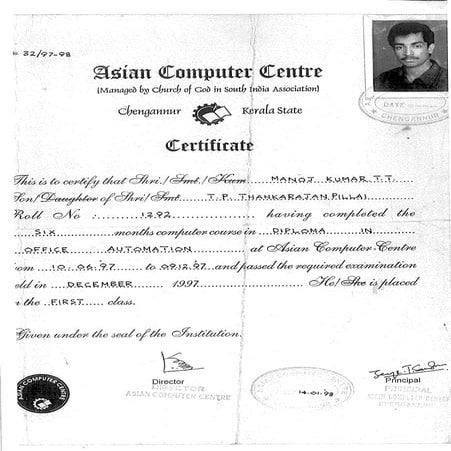 32/97-98
Asian Computer Centre
(Managed by Church of God in South India Association)
Chengannur Kerala State
Certificate
This is to certify that Shri./Smt./Kum MANOJ KUMAR T.T.
Son/Daughter of Shri/Smt T.P. THANKARAJAN PILLAI
Roll No : 1292 having completed the
SIX months computer course in DIPLOMA IN
OFFICE AUTOMATION at Asian Computer Centre
om 10.06.97 to 09.12.97 and passed the required examination
eld in DECEMBER 1997 He/She is placed
n the FIRST class.
Given under the seal of the Institution.
DATE
CHENGANNUR
Director
DIRECTOR
ASIAN COMPUTER CENTRE
ASIAN COMPUTER CENTRE
14-01-98
Principal
PRINCIPAL
ASIAN COMPUTER CENTRE